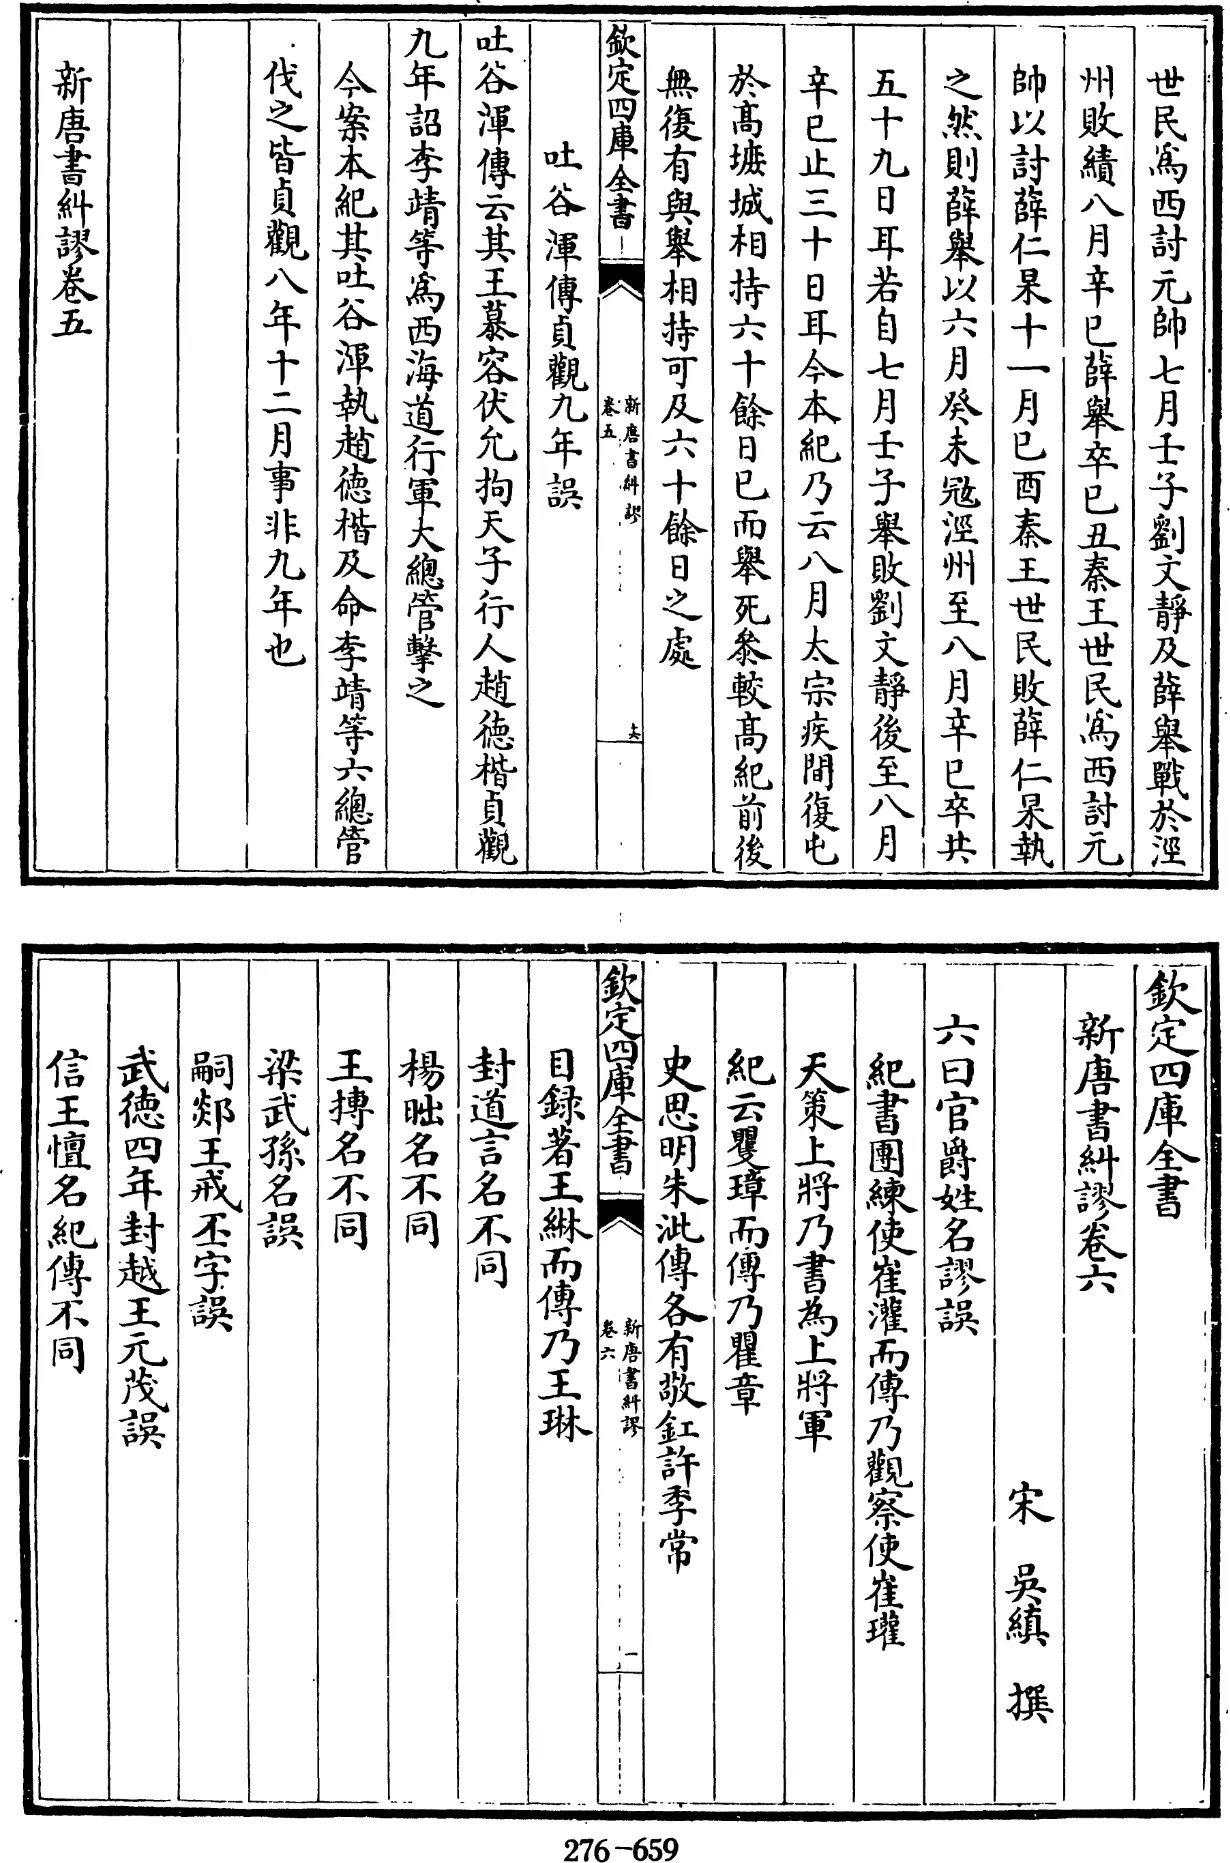 世民爲西討元帥七月壬子劉文靜及薛舉戰於涇
州敗績八月辛巳薛舉卒巳丑秦王世民爲西討元
帥以討薛仁杲十一月巳酉秦王世民敗薛仁杲執
之然則薛舉以六月癸未宼涇州至八月辛巳卒共
五十九日耳若自七月壬子舉敗劉文靜後至八月
辛巳止三十日耳今本紀乃云八月太宗疾間復屯
於高墌城相持六十餘日巳而舉死叅較高紀前後
無復有與舉相持可及六十餘日之處
欽定四庫全書
新唐書糾謬
卷五
吐谷渾傳貞觀九年誤
吐谷渾傳云其王慕容伏允拘天子行人趙德楷貞觀
九年詔李靖等爲西海道行軍大總管擊之
今案本紀其吐谷渾執趙德楷及命李靖等六總管
伐之皆貞觀八年十二月事非九年也
新唐書糾謬卷五
欽定四庫全書
新唐書糾謬卷六
宋 吳縝 撰
六曰官爵姓名謬誤
紀書團練使崔灌而傳乃觀察使崔瓘
天策上將乃書為上將軍
紀云瞿璋而傳乃瞿章
史思明朱泚傳各有敬釭許季常
欽定四庫全書
新唐書糾謬
卷六
一
目録著王綝而傳乃王琳
封道言名不同
楊昢名不同
王摶名不同
梁武孫名誤
嗣郯王戒丕字誤
武德四年封越王元茂誤
信王憻名紀傳不同
276-659